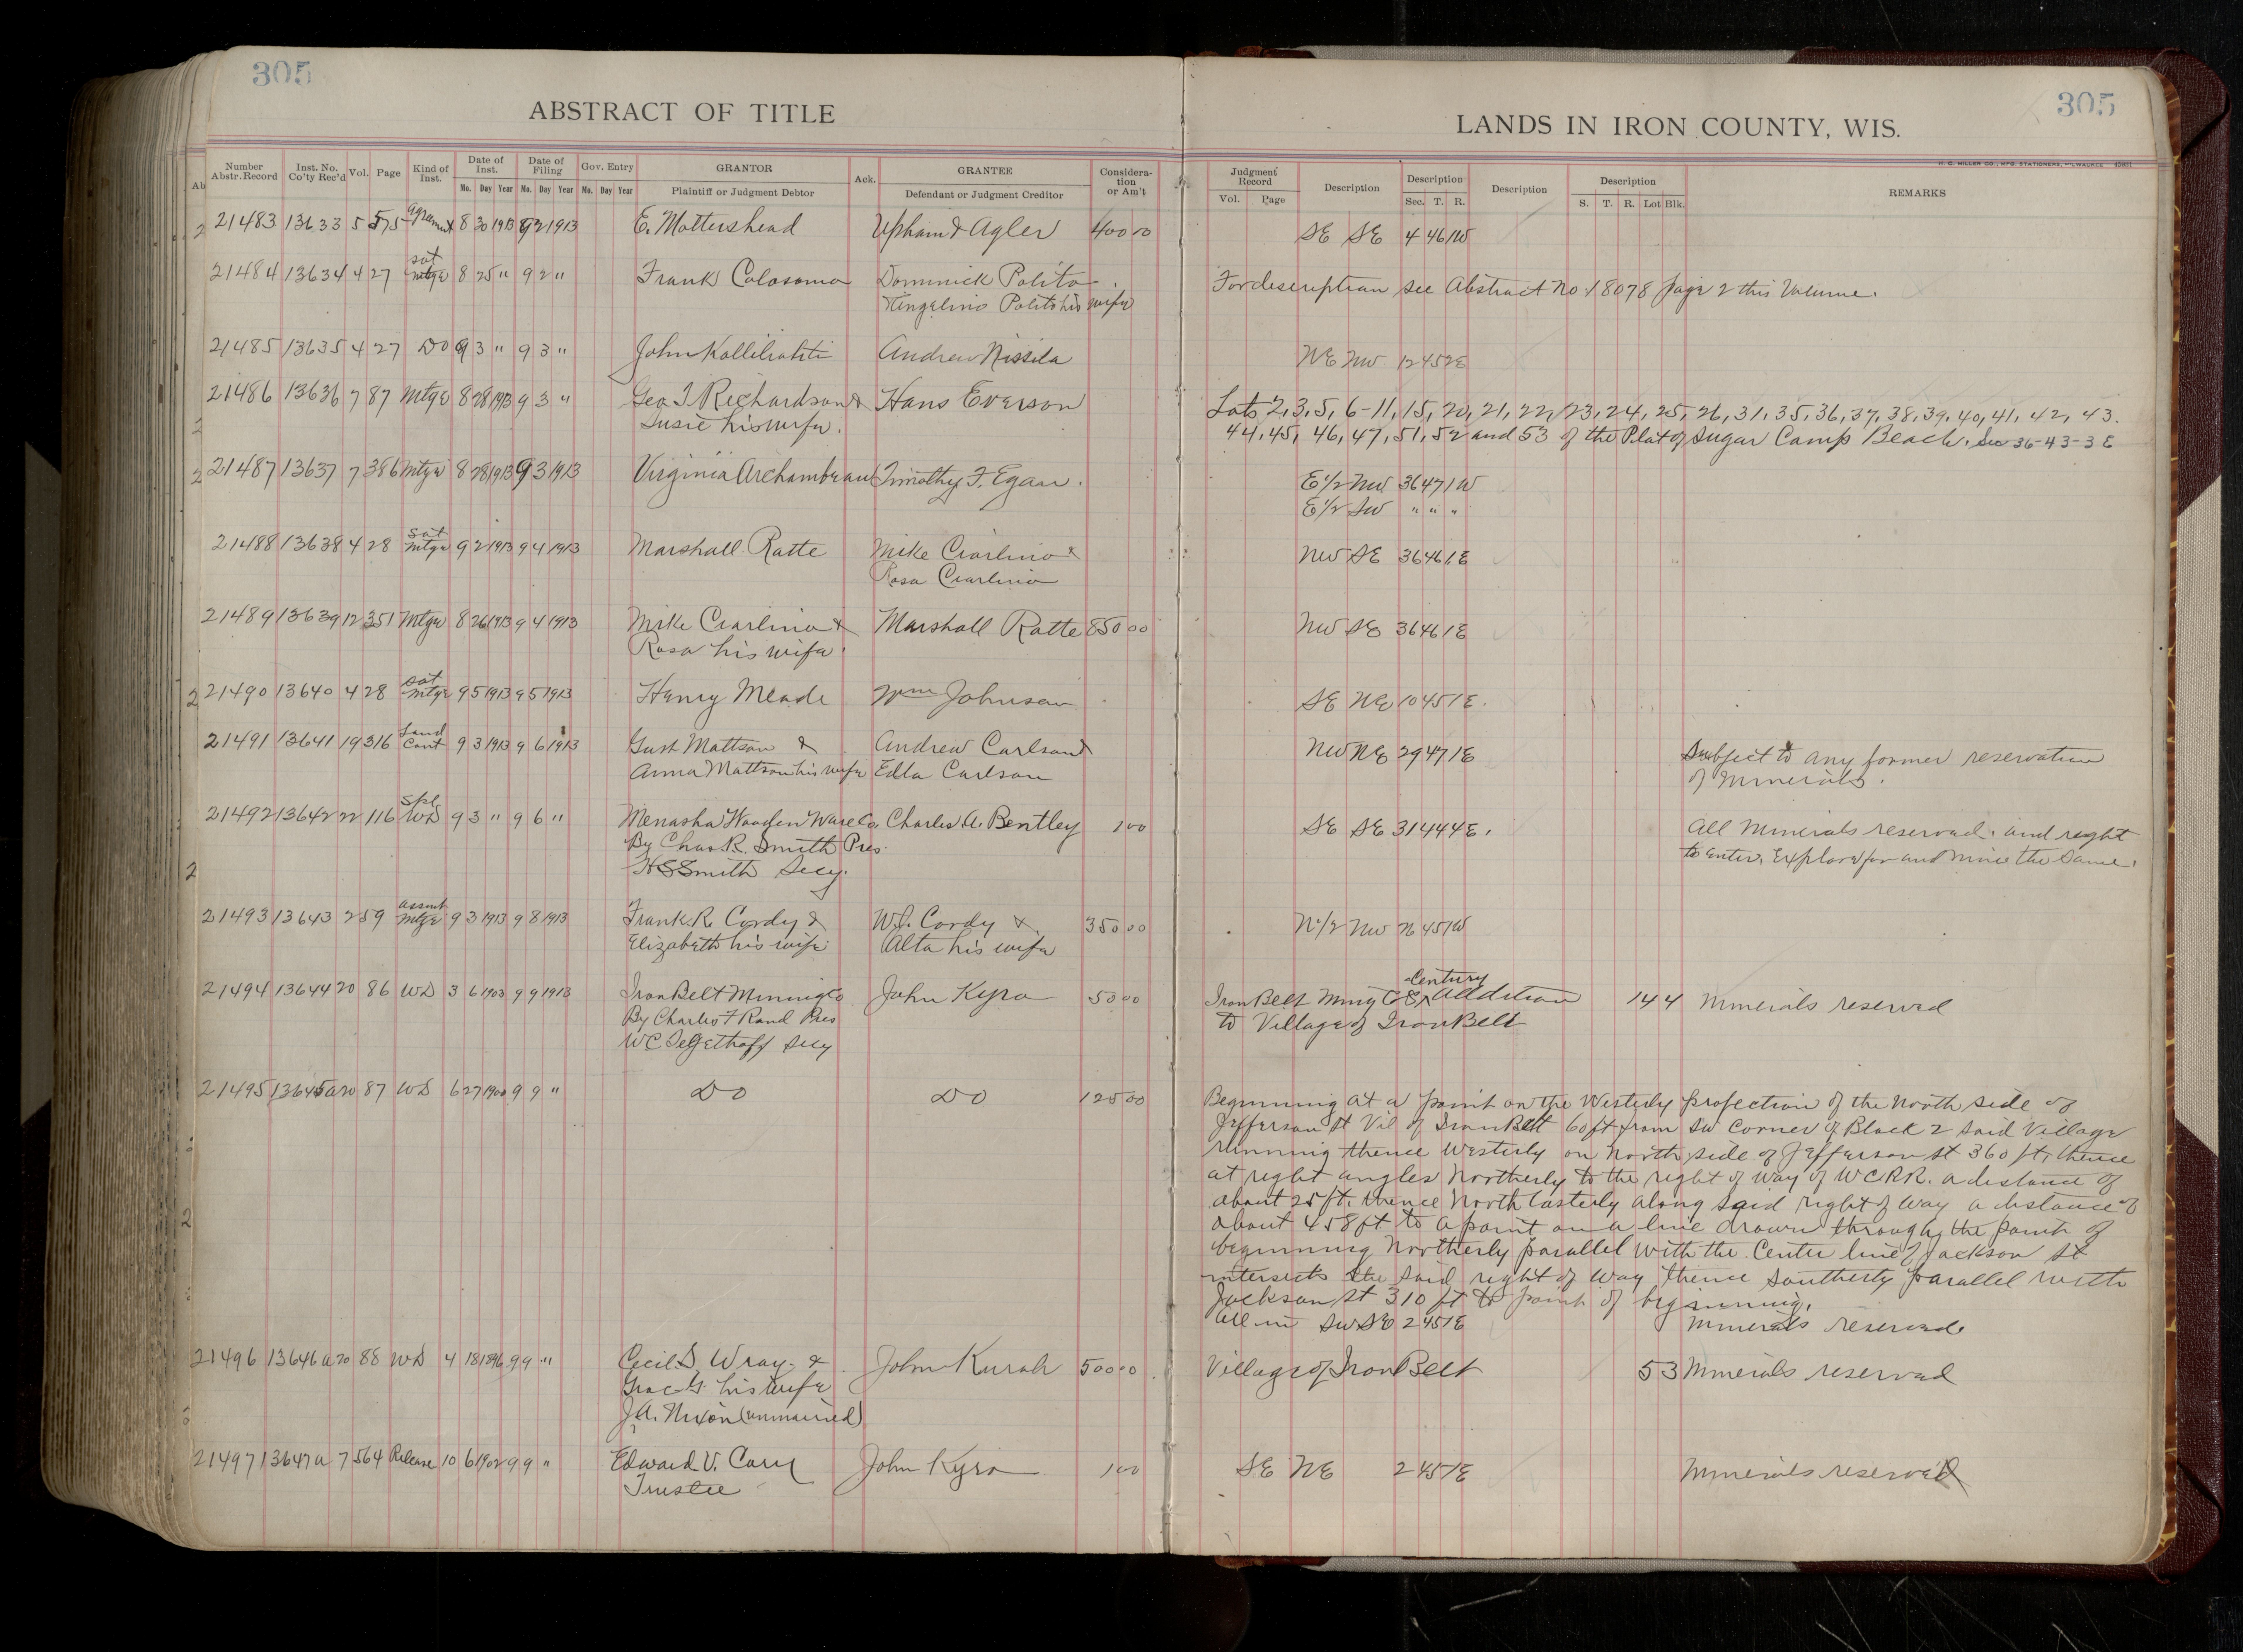 305
305
ABSTRACT OF TITLE
LANDS IN IRON COUNTY, WIS.
H. C. MILLER CO., MFG. STATIONERS, MILWAUKEE
Number Abstr. Record Inst. No. Co'ty Rec'd Vol. Page Kind of Inst. Date of Inst. Mo. Day Year Date of Filing Mo. Day Year Gov. Entry Mo. Day Year GRANTOR Plaintiff or Judgment Debtor Ack. GRANTEE Defendant or Judgment Creditor Considera-tion or Am't
Judgment Record Vol. Page Description Description Sec. T. R. Description Description S. T. R. Lot Blk. REMARKS
21483 13633 5 575 Agrament 8 30 1913 9 2 1913 E. Mottershead Upham & Agler 400 00 SE SE 4 46 1W
21484 13634 4 27 Sat Mtge 8 25 " 9 2 " Frank Colosomo Dominick Polito
his wife
For description see Abstract No 18078 page 2 this Volume.
21485 13635 4 27 DO 9 3 " 9 3 " John Kallilahti Andrew Nissila NE NW 12 45 2E
21486 13636 7 87 Mtge 8 28 1913 9 3 " Geo I Richardson & Hans Everson
Susie his wife.
Lots 2, 3, 5, 6-11, 15, 20, 21, 22, 23, 24, 25, 26, 31, 35, 36, 37, 38, 39, 40, 41, 42, 43.
44, 45, 46, 47, 51, 52 and 53 of the Plat of Sugar Camp Beach. Sec 36-43-3 E
21487 13637 7 386 Mtge 8 28 1913 9 3 1913 Virginia Archambeau Timothy F. Egan. E 1/2 NW 36 47 1W
E 1/2 SW " " "
21488 13638 4 28 Sat Mtge 9 2 1913 9 4 1913 Marshall Ratte Mike Ciarlino & NW SE 36 46 1E
Rosa Ciarlino
21489 13639 12 351 Mtge 8 26 1913 9 4 1913 Mike Ciarlino & Marshall Ratte 850 00 NW SE 36 46 1E
Rosa his wife.
21490 13640 4 28 Sat Mtge 9 5 1913 9 5 1913 Henry Meade Wm Johnson SE NE 10 45 1E.
21491 13641 19 316 Land Cont 9 3 1913 9 6 1913 Gust Mattson & Andrew Carlson & NW NE 29 47 1E Subject to any former reservation
Anna Mattson his wife Edla Carlson of Minerals.
21492 13642 22 116 Spl WD 9 3 " 9 6 " Menasha Wooden Ware Co. Charles A. Bentley 1 00 SE SE 31 44 4E. All Minerals reserved. and right
By Chas R. Smith Pres. to enter, Explore for and mine the same.
H S Smith Secy.
21493 13643 2 59 Assmt Mtge 9 3 1913 9 8 1913 Frank R. Cordy & W.J. Cordy & 350 00 N 1/2 NW 26 45 1W
Elizabeth his wife Alta his wife
21494 13644 20 86 WD 3 6 1903 9 9 1913 Iron Belt Mining Co John Kyro 50 00 Iron Belt Ming Co's Century Addition 14 4 Minerals reserved
By Charles F Rand Pres to Village of Iron Belt
WC Tegethoff Secy
21495 13645a 20 87 WD 6 27 1900 9 9 " DO DO 125 00
Beginning at a point on the Westerly projection of the North side of
Jefferson St Vil of Iron Belt 60 ft from SW Corner of Block 2 said Village
running thence Westerly on North side of Jefferson St 360 ft, thence
at right angles Northerly to the right of way of WCRR. a distance of
about 25 ft. thence North Easterly along said right of way a distance of
about 458 ft to a point on a line drawn through the point of
beginning Northerly parallel with the Center line of Jackson St
intersects the said right of way thence Southerly parallel with
Jackson St 310 ft to point of beginning.
All in SW SE 2 45 1E Minerals reserved
21496 13646a 20 88 WD 4 18 1896 9 9 " Cecil D. Wray & John Kurah 500 00 Village of Iron Belt 5 3 Minerals reserved
Grace G. his wife
J.A. Nixon (unmarried)
21497 13647a 7 564 Release 10 6 1902 9 9 " Edward V. Cary John Kyro 1 00 SE NE 2 45 1E Minerals reserved
Trustee